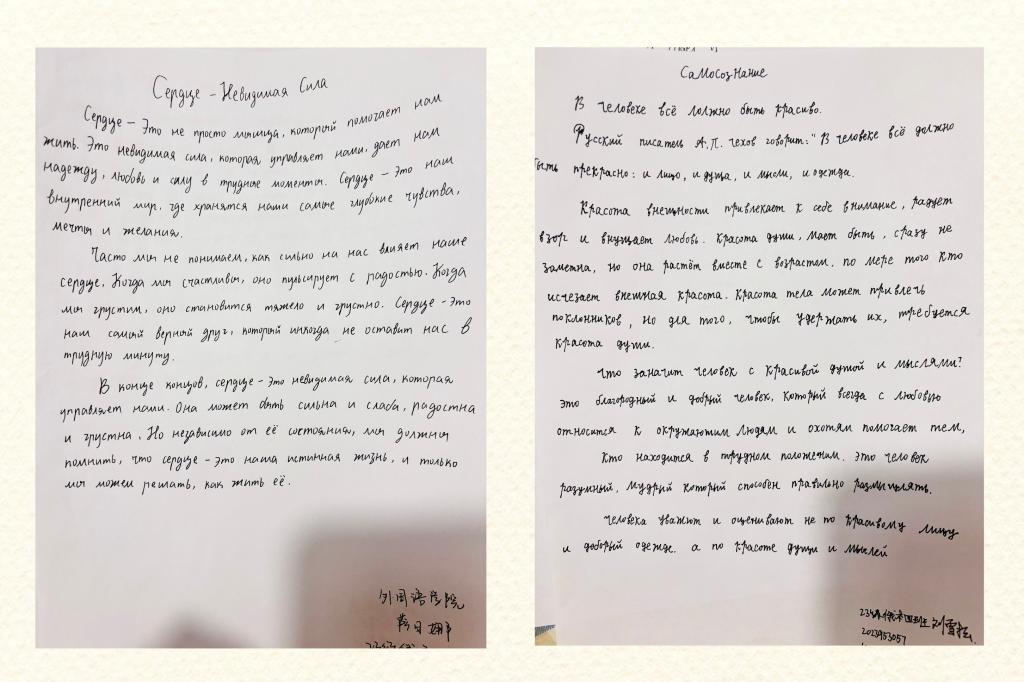 Сердце – Невидимая Сила
Сердце – Это не просто мышца, который помогает нам
жить. Это невидимая сила, которая управляет нами, даёт нам
надежду, любовь и силу в трудные моменты. Сердце – Это наш
внутренний мир, где хранятся наши самые глубокие чувства,
мечты и желания.
Часто мы не понимаем, как сильно на нас влияет наше
сердце. Когда мы счастливы, оно пульсирует с радостью. Когда
мы грустим, оно становится тяжело и грустно. Сердце – это
наш самый верный друг, который никогда не оставит нас в
трудную минуту.
В конце концов, сердце – это невидимая сила, которая
управляет нами. Она может быть сильна и слаба, радостна
и грустна. Но независимо от её состояния, мы должны
помнить, что сердце – это наша истинная жизнь, и только
мы можем решать, как жить её.
外国语学院
Самосознание
В человеке всё должно быть красиво.
Русский писатель А.П. Чехов говорит: "В человеке всё должно
быть прекрасно: и лицо, и душа, и мысли, и одежда.
Красота внешности привлекает к себе внимание, радует
взор и внущает любовь. Красота души, мает быть, сразу не
заметна, но она растёт вместе с возрастом. по мере того кто
исчезает внешная красота. Красота тела может привлечь
поклонников, но для того, чтобы удержать их, требуется
красота души.
Что значит человек с красивой душой и мыслями?
это благородный и добрый человек, который всегда с любовью
относится к окружающим людям и охотям помогает тем,
кто находится в трудном положении. это человек
разумный, мудрый который способен правильно размышлять.
человека уважют и оценивают не по красивому лицу
и добрый одежде. а по красоте души и мыслей
2023453057